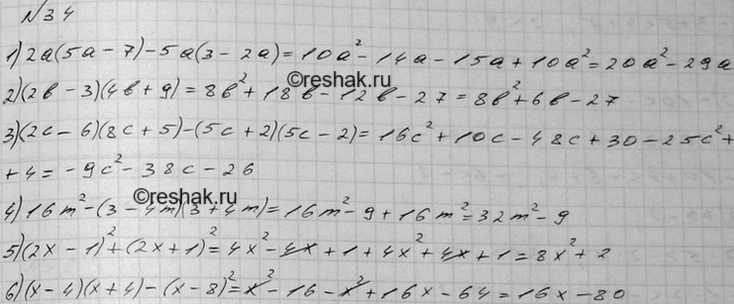 №34
1) 2a(5a - 7) - 5a(3 - 2a) = 10a² - 14a - 15a + 10a² = 20a² - 29a
©reshak.ru
2) (2в - 3)(4в + 9) = 8в² + 18в - 12в - 27 = 8в² + 6в - 27
3) (2c - 6)(8c + 5) - (5c + 2)(5c - 2) = 16c² + 10c - 48c + 30 - 25c² +
+ 4 = -9c² - 38c - 26
©reshak.ru
4) 16m² - (3 - 4m)(3 + 4m) = 16m² - 9 + 16m² = 32m² - 9
5) (2x - 1)² + (2x + 1)² = 4x² - 4x + 1 + 4x² + 4x + 1 = 8x² + 2
6) (x - 4)(x + 4) - (x - 8)² = x² - 16 - x² + 16x - 64 = 16x - 80